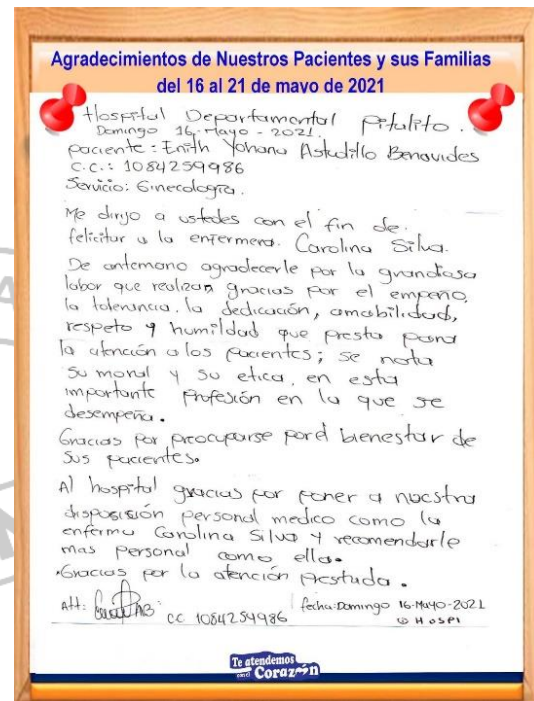 Agradecimientos de Nuestros Pacientes y sus Familias
del 16 al 21 de mayo de 2021
Hospital Departamental Pitalito.
Domingo 16-Mayo-2021.
paciente: Enith Yohana Astudillo Benavides
C.C.: 1084259986
Servicio: Ginecología.
Me dirijo a ustedes con el fin de.
felicitar a la enfermera. Carolina Silva.
De antemano agradecerle por la grandiosa
labor que realizan gracias por el empeño,
la tolerancia, la dedicación, amabilidad,
respeto y humildad que presta para
la atención a los pacientes; se nota
su moral y su etica, en esta
importante profesión en la que se
desempeña.
Gracias por preocuparse por el bienestar de
sus pacientes.
Al hospital gracias por poner a nuestra
disposisión personal medico como la
enferma Carolina Silva y recomendarle
mas personal como ella.
Gracias por la atención prestada.
Att: CC 1084254986 fecha: Domingo 16-Mayo-2021
HOSPI
Te atendemos
con el Corazón